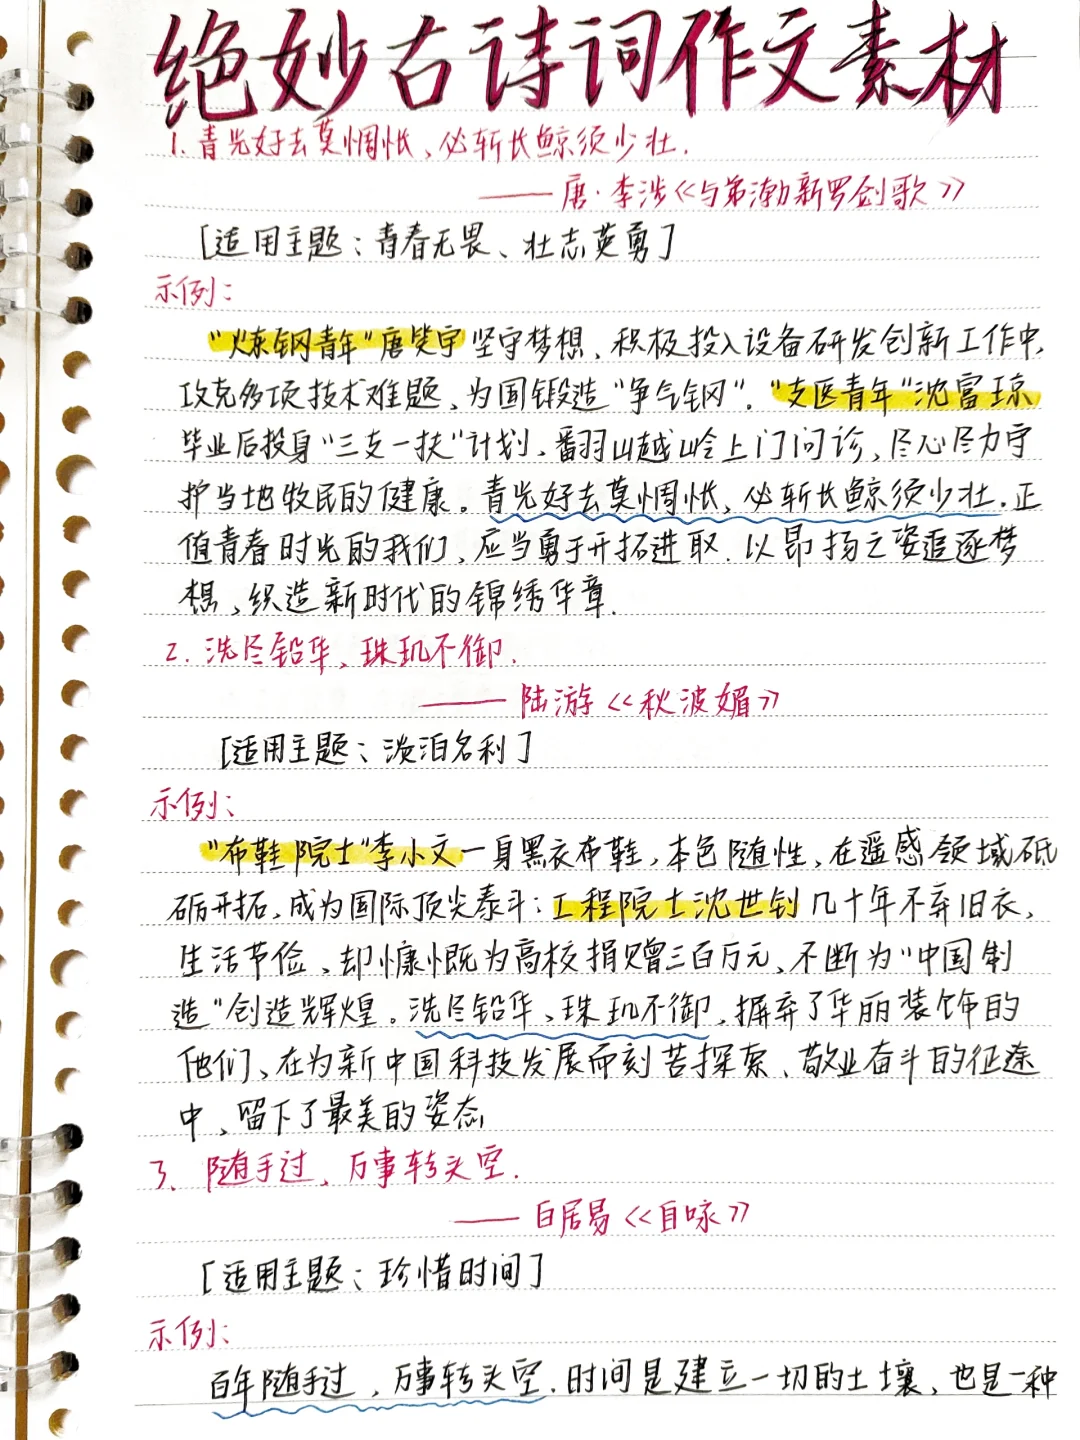 绝妙古诗词作文素材
1. 青光好去莫惆怅、必斩长鲸须少壮.
——唐·李涉《与弟渤新罗剑歌》
[适用主题：青春无畏、壮志英勇]
示例：
"炼钢青年"唐笑宇坚守梦想、积极投入设备研发创新工作中,
攻克多项技术难题、为国锻造"争气钢"."支医青年"沈富琼
毕业后投身"三支一扶"计划、翻山越岭上门问诊、尽心尽力守
护当地牧民的健康。青光好去莫惆怅，必斩长鲸须少壮.正
值青春时光的我们、应当勇于开拓进取.以昂扬之姿追逐梦
想、织造新时代的锦绣华章.
2. 洗尽铅华、珠玑不御.
——陆游《秋波媚》
[适用主题：淡泊名利]
示例：
"布鞋院士"李小文一身黑衣布鞋,本色随性、在遥感领域砥
砺开拓,成为国际顶尖泰斗：工程院士沈世钊几十年不弃旧衣、
生活节俭、却慷慨为高校捐赠三百万元、不断为"中国制
造"创造辉煌。洗尽铅华、珠玑不御、摒弃了华丽装饰的
他们、在为新中国科技发展而刻苦探索、敬业奋斗的征途
中、留下了最美的姿态
3. 随手过、万事转头空.
——白居易《自咏》
[适用主题：珍惜时间]
示例：
百年随手过，万事转头空.时间是建立一切的土壤、也是一种